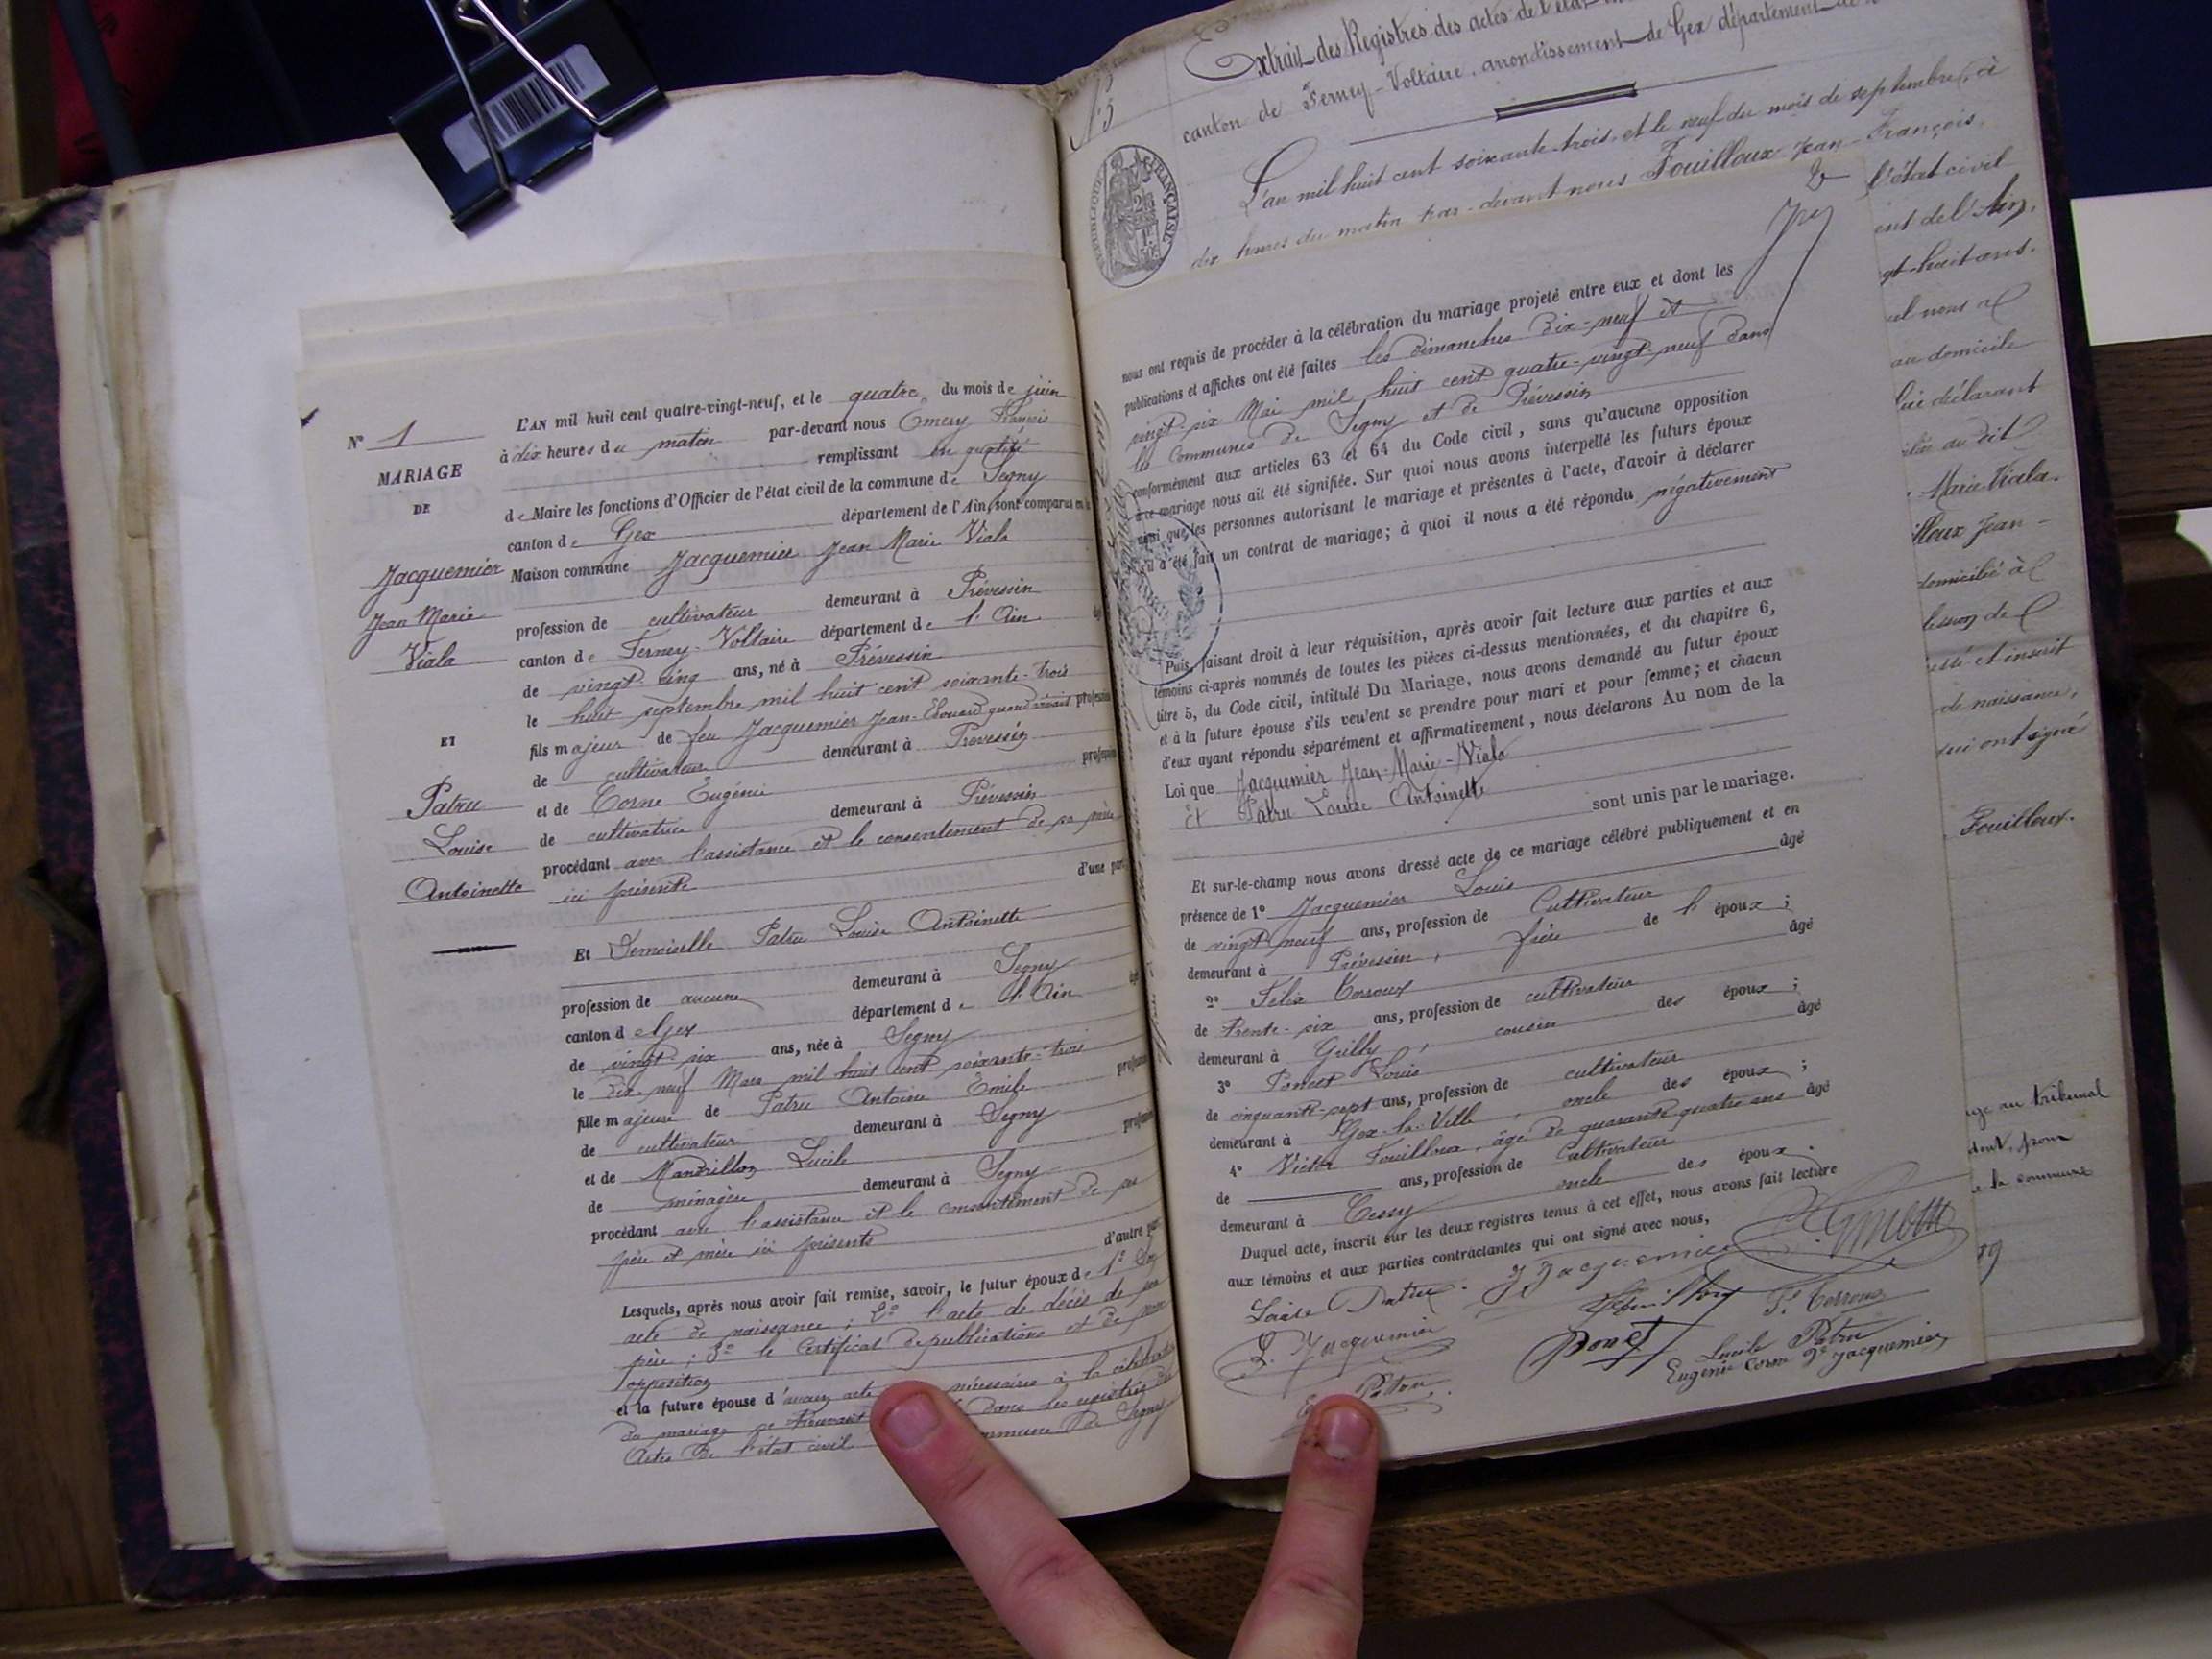 N° 1
MARIAGE
DE
Jacquemier
Jean Marie
Viala
ET
Patru
Louise
Antoinette
L'AN mil huit cent quatre-vingt-neuf, et le quatre du mois de juin
à dix heures du matin par-devant nous Emery François
remplissant en qualité
de Maire les fonctions d'Officier de l'état civil de la commune de Segny
canton de Gex département de l'Ain, sont comparus en la
Maison commune Jacquemier Jean Marie Viala
profession de cultivateur demeurant à Prévessin
canton de Ferney-Voltaire département de l'Ain
de vingt-cinq ans, né à Prévessin
le huit septembre mil huit cent soixante-trois
fils majeur de feu Jacquemier Jean-Edouard quand vivait
de cultivateur demeurant à Prévessin
et de Corne Eugénie
de cultivatrice demeurant à Prévessin
procédant avec l'assistance et le consentement de sa mère
ici présente d'une
Et Demoiselle Patru Louise Antoinette
profession de aucune demeurant à Segny
canton d e Gex département de l'Ain
de vingt-six ans, née à Segny
le dix-neuf Mars mil huit cent soixante-trois
fille majeure de Patru Antoine Emile
de cultivateur demeurant à Segny
et de Mandrillon Lucile
de ménagère demeurant à Segny
procédant avec l'assistance et le consentement de ses
père et mère ici présents d'autre
Lesquels, après nous avoir fait remise, savoir, le futur époux de 1° Son
acte de naissance; 2° l'acte de décès de son
père; 3° le certificat de publications et de non
opposition
et la future épouse d'aucun acte nécessaires à la
du mariage se trouvant dans les registres des
Actes de l'état civil commune de Segny
N° 3
Extrait des Registres des actes de l'état
canton de Ferney-Voltaire, arrondissement de Gex département de
RÉPUBLIQUE FRANÇAISE
L'an mil huit cent soixante-trois, et le neuf du mois de septembre, à
dix heures du matin par-devant nous Fouilloux Jean-François,
l'état civil
ent de l'Ain,
gt-huit ans.
nous ont requis de procéder à la célébration du mariage projeté entre eux et dont les
publications et affiches ont été faites les dimanches dix-neuf et
vingt-six Mai mil huit cent quatre-vingt-neuf dans
les communes de Segny et de Prévessin
conformément aux articles 63 et 64 du Code civil, sans qu'aucune opposition
à ce mariage nous ait été signifiée. Sur quoi nous avons interpellé les futurs époux
ainsi que les personnes autorisant le mariage et présentes à l'acte, d'avoir à déclarer
s'il a été fait un contrat de mariage; à quoi il nous a été répondu négativement
Puis, faisant droit à leur réquisition, après avoir fait lecture aux parties et aux
témoins ci-après nommés de toutes les pièces ci-dessus mentionnées, et du chapitre 6,
titre 5, du Code civil, intitulé Du Mariage, nous avons demandé au futur époux
et à la future épouse s'ils veulent se prendre pour mari et pour femme; et chacun
d'eux ayant répondu séparément et affirmativement, nous déclarons Au nom de la
Loi que Jacquemier Jean-Marie-Viala
Et Patru Louise Antoinette
sont unis par le mariage.
Et sur-le-champ nous avons dressé acte de ce mariage célébré publiquement et en
présence de 1° Jacquemier Louis âgé
de vingt neuf ans, profession de Cultivateur
demeurant à Prévessin, frère de l'époux;
2° Félix Corroux âgé
de trente-six ans, profession de cultivateur
demeurant à Grilly, cousin des époux;
3° Poncet Louis âgé
de cinquante-sept ans, profession de cultivateur
demeurant à Gex-la-Ville, oncle des époux;
4° Victor Fouilloux, âgé de quarante quatre ans âgé
de ans, profession de Cultivateur
demeurant à Cessy oncle des époux.
Duquel acte, inscrit sur les deux registres tenus à cet effet, nous avons fait lecture
aux témoins et aux parties contractantes qui ont signé avec nous,
Louise Patru. J Jacquemier
L. Jacquemier Poncet Lucile Patru
Eugénie Corne Jacquemier
Patru
au domicile
lui déclarant
Marie Viala.
illoux Jean-
domicilié à
de naissance,
qui ont signé
Fouilloux.
au tribunal
la commune